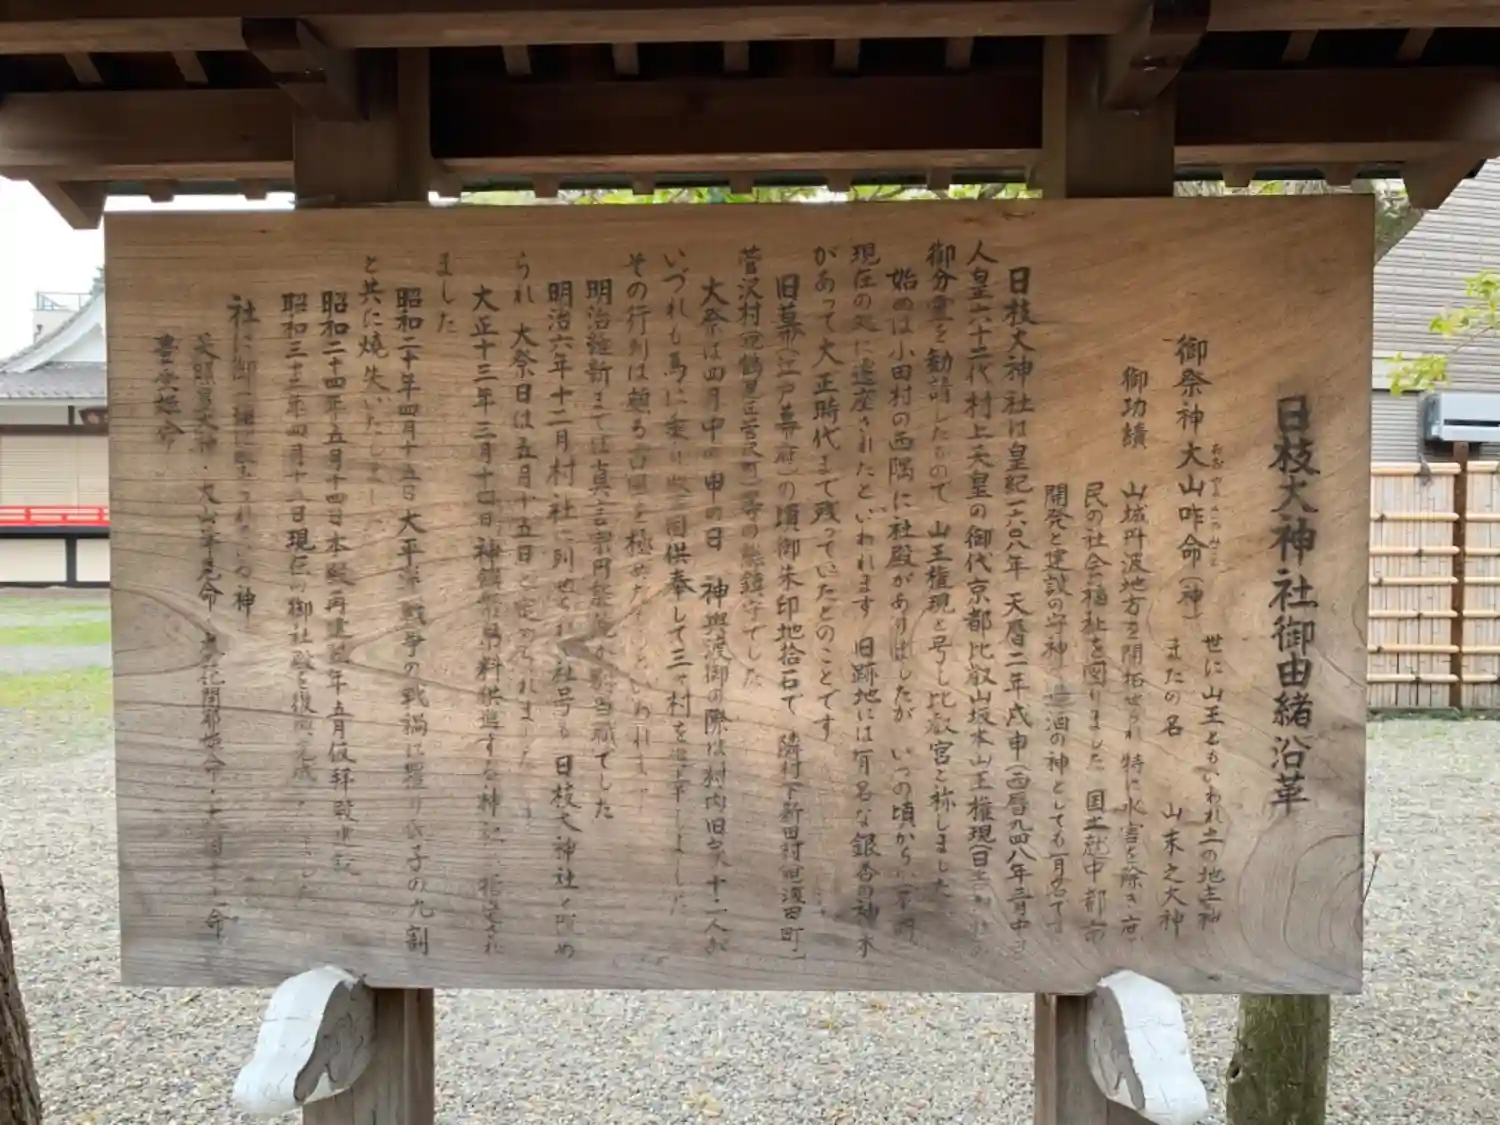 日枝大神社御由緒沿革
御祭神 大山咋命(神)
おおやまくいのみこと
世に山王ともいわれ土の地主神
またの名 山末之大神
御功績 山城丹波地方を開拓せられ 特に水害を除き
民の社会福祉を図りました 国土就中都市
開発と建設の守神 造酒の神としても有名です
日枝大神社は皇紀一六〇八年 天暦二年戊申(西暦九四八年三月中
人皇六十二代村上天皇の御代京都比叡山坂本山王権現(日吉
御分霊を勧請したもので 山王権現と号し比叡宮と称しました
始めは小田村の西隅に社殿がありましたが いつの頃から
現在の処に遷座されたといわれます 旧跡地には有名な銀杏の神木
があって大正時代まで残っていたとのことです
旧幕(江戸幕府)の頃御朱印地拾石で 隣村下新田村(現浅田町)
菅沢村(現鶴見区菅沢町)等の総鎮守でした
大祭は四月中の申の日 神輿渡御の際は村内旧家十二人が
いづれも馬に乗り 供奉して三ヶ村を
その行列は頗る 極めた といわれます
明治維新までは真言宗円 別当職でした
明治六年十二月村社に列せられ 社号も 日枝大神社と改め
られ 大祭日は五月十五日と定められました
大正十三年三月十四日 神饌幣帛料供進する神社に指定され
ました
昭和二十年四月十五日大平洋戦争の戦禍に罹り氏子の九割
と共に焼失いたしました
昭和二十四年五月十四日本殿再建 年五月仮拝殿建設
昭和三十三年四月十五日現在の御社殿を復興完成 ました
社に御一緒に 神
天照皇大神・
豊受姫命